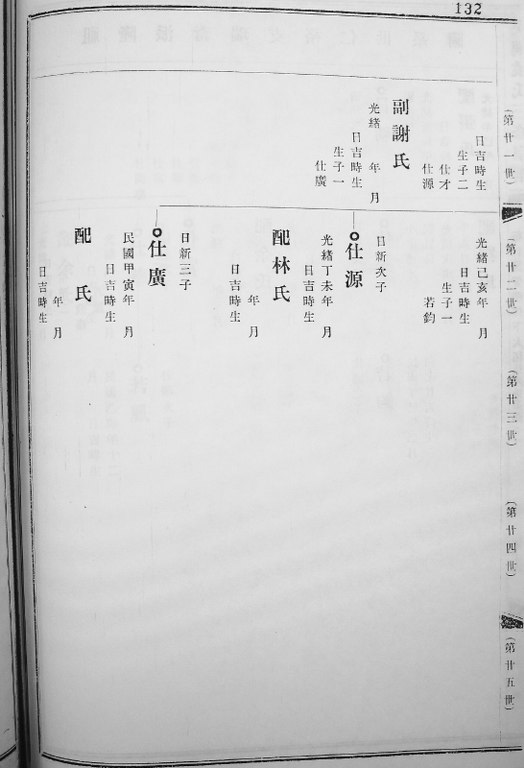 132
(第廿一世)
日吉時生
生子二
仕才
仕源
副謝氏
光緒 年 月
日吉時生
生子一
仕廣
(第廿二世)
光緒己亥年 月
日吉時生
生子一
若鈞
日新次子
仕源
光緒丁未年 月
日吉時生
配林氏
年 月
日吉時生
日新三子
仕廣
民國甲寅年 月
日吉時生
配 氏
年 月
日吉時生
(第廿三世)
(第廿四世)
(第廿五世)